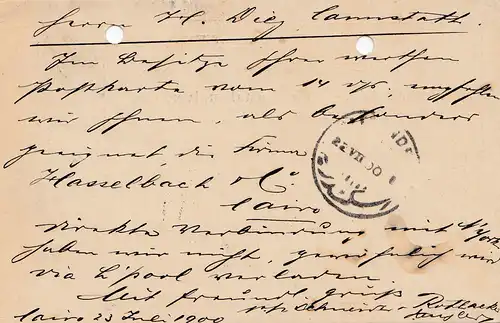 Herrn H. Diez Cannstatt.
Im Besitze Ihrer werthen
Postkarte vom 14 ds, empfehlen
wir Ihnen, als besonders
geeignet die Firma
Hasselbach & Co
Cairo
direkte Verbindung mit
haben wir nicht, gewöhnlich wird
via L'pool verladen.
Mit freundl. Gruß
Schneider & Rothacker
Cairo 23 Juli 1900
22 VII 00